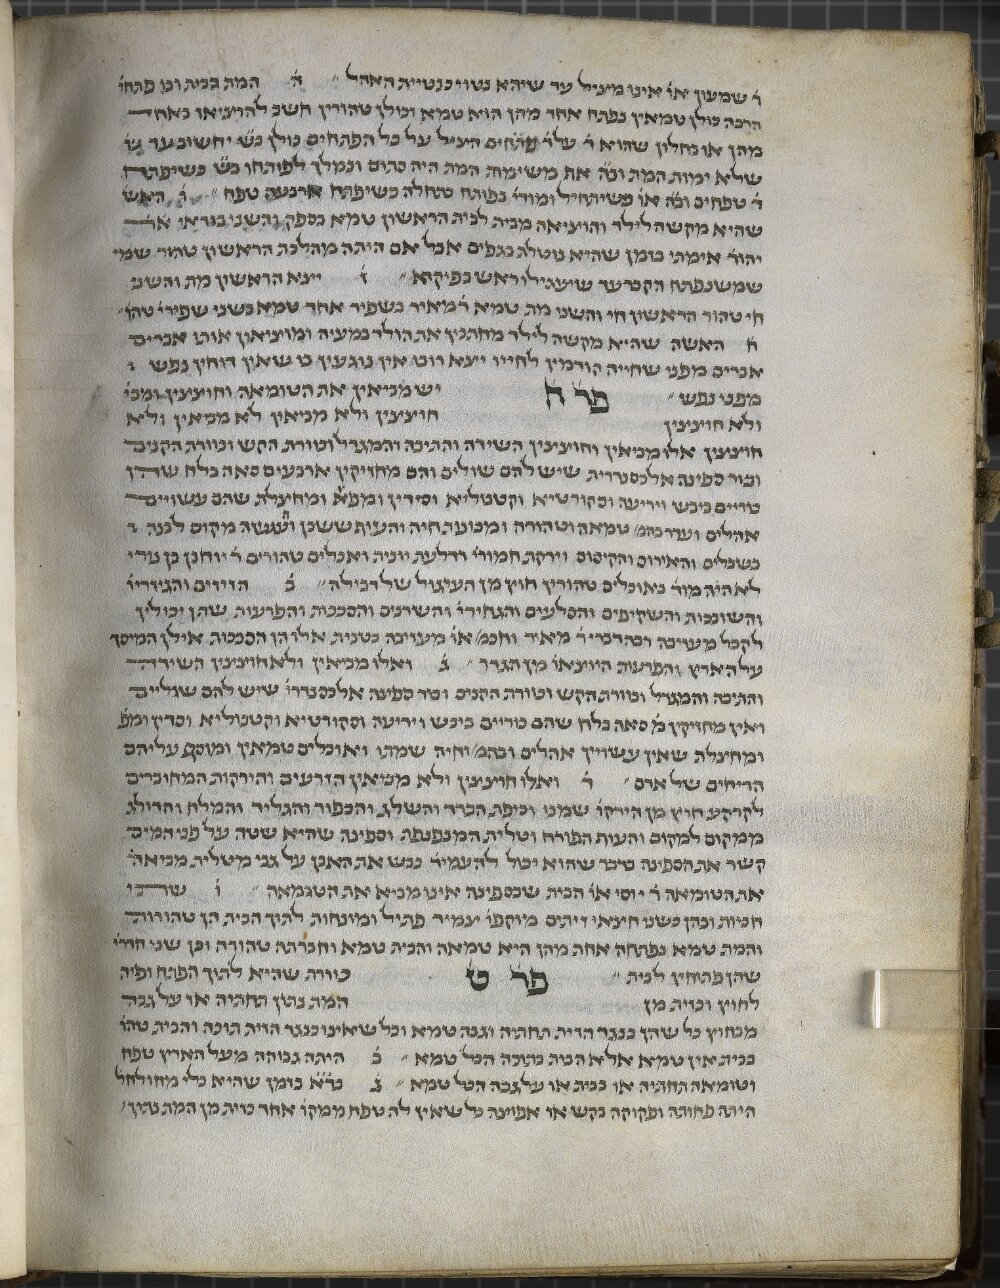 ר׳ שמעון או׳ אינו מציל עד שיהא בטווי כנטיית האהל ׳׳ ה׳ המת בבית ובו פתחי׳
הרבה כולן טמאין נפתח אחד מהן הוא טמא וכולן טהורין חשב להוציאו באחד
מהן או בחלון שהוא ד׳ על ד׳ טפחים הציל על כל הפתחים כולן בש׳ יחשוב עד שי׳
שלא ימות המת ובה׳ אף משימות המת היה סתום ונמלך לפותחו בש׳ כשיפתח
ד׳ טפחים ובה׳ או׳ כשיתחיל ומודי׳ בפותח כתחלה כשיפתח ארבעה טפח׳ ׳׳ ו׳ האש׳
שהיא מקשה לילד והוציאוה מבית לבית הראשון טמא בספק והשני בודאי אר׳
יהוד׳ אימתי בזמן שהיא ניטלת בגפים אבל אם היתה מהלכת הראשון טהור שמי׳
שמשנפתח הקבר עד שיעגילו ראש כפיקא ׳׳ ז׳ יצא הראשון מת והשני
חי טהור הראשון חי והשני מת טמא ר׳ מאיר בשפיר אחד טמא בשני שפירי׳ טהו׳
ח׳ האשה שהיא מקשה לילד מחתכין את הולד במעיה ומוציאין אותו אברים
אברים מפני שחייה קודמין לחייו יצא רובו אין נוגעין בו שאין דוחין נפש
מפני נפש ׳׳ פר׳ ח יש מביאין את הטומאה וחוצצין ומבי׳
ולא חוצצין חוצצין ולא מביאין לא מביאין ולא
חוצצין אלו מביאין וחוצצין השידה והתיבה והמגדל וכוורת הקש וכוורת הקנים
ובור ספינה אלכסנדרית שיש להם שולים והם מחזיקין ארבעים סאה בלח שהן
כוריים ביבש ויריעה וסקורטיא וקטבוליא וסידין ומפא׳ ומחצלת שהם עשויים
אהלים ועדר בהמ׳ טמאה וטהורה ומכונות חיה והעוף ששכן והעושה מקום לבנה
בשבלים והאירוס והקיסוס וירקת חמור׳ ודלעת יונית ואכלים טהורים ר׳ יוחנן בן נורי
לא היה מוד׳ באוכלים טהורין חוץ מן העיגול של דבילה ׳׳ ב׳ הזיזים והגיזריו׳
והשובכות והשקיפים והסלעים והגהירי׳ והשונים והסככות והפרעות שהן יכולין
לקבל מעזיבה רכה דברי ר׳ מאיר וחכמ׳ או׳ מעזיבה בטנית אלו הן הסככות אילן המיסך
על הארץ והפרעות היוצאו מן הגדר ׳׳ ג׳ ואלו מביאין ולא חוצצין השידה
והתיבה והמגדל וכוורת הקש וכוורת הקנים ובור ספינה אלכסנדרי׳ שיש להם שוליים
ואין מחזיקין מ׳ סאה בלח שהם כוריים ביבש ויריעה וסקורטיא וקטבוליא וסדין ומפ׳
ומחצלת שאין עשויין אהלים ובהמ׳ וחיה שמתו ואוכלים טמאין ומוסף עליהם
הריחים של אדם ׳׳ ד׳ ואלו חוצצין ולא מביאין הזרעים והירקות המחוברים
לקרקע חוץ מן הירקו׳ שמנו וכיפת הברד והשלג והכפור והגליד והמלח והדולג
ממקום למקום והעוף הפורח וטלית המנפנפת וספינה שהיא שטה על פני המים
קשר את הספינה בדבר שהוא יכול להעמיד כבש את האבן על גבי הטלית מביאה
את הטומאה ר׳ יוסי או׳ הבית שבספינה אינו מביא את הטומאה ׳׳ ו׳ שתי
חביות ובהן כשני חצאי זיתים מוקפו׳ צמיד פתיל ומונחות לתוך הבית הן טהורות
והמת טמא נפתחה אחת מהן היא טמאה והבית טמא וחברתה טהורה וכן שני חדרי׳
שהן פתוחין לבית ׳׳ פר׳ ט כוורת שהיא לתוך הפתח ופיה
לחוץ וכזית מן המת נתון תחתיה או על גבה
מבחוץ כל שהן כנגד הזית תחתיה וגבה טמא וכל שאינו כנגד הזית תוכה והבית טהו׳
בבית אין טמא אלא הבית בתוכה הכל טמא ׳׳ ב׳ היתה גבוהה מעל הארץ טפח
וטומאה תחתיה או בבית או על גבה הכל טמא ׳׳ ג׳ בד״א בזמן שהיא כלי מחולחל
היתה פחותה ופקוקה בקש או אפוצה כל שאין לה טפח ממקו׳ אחד כזית מן המת נתון׳